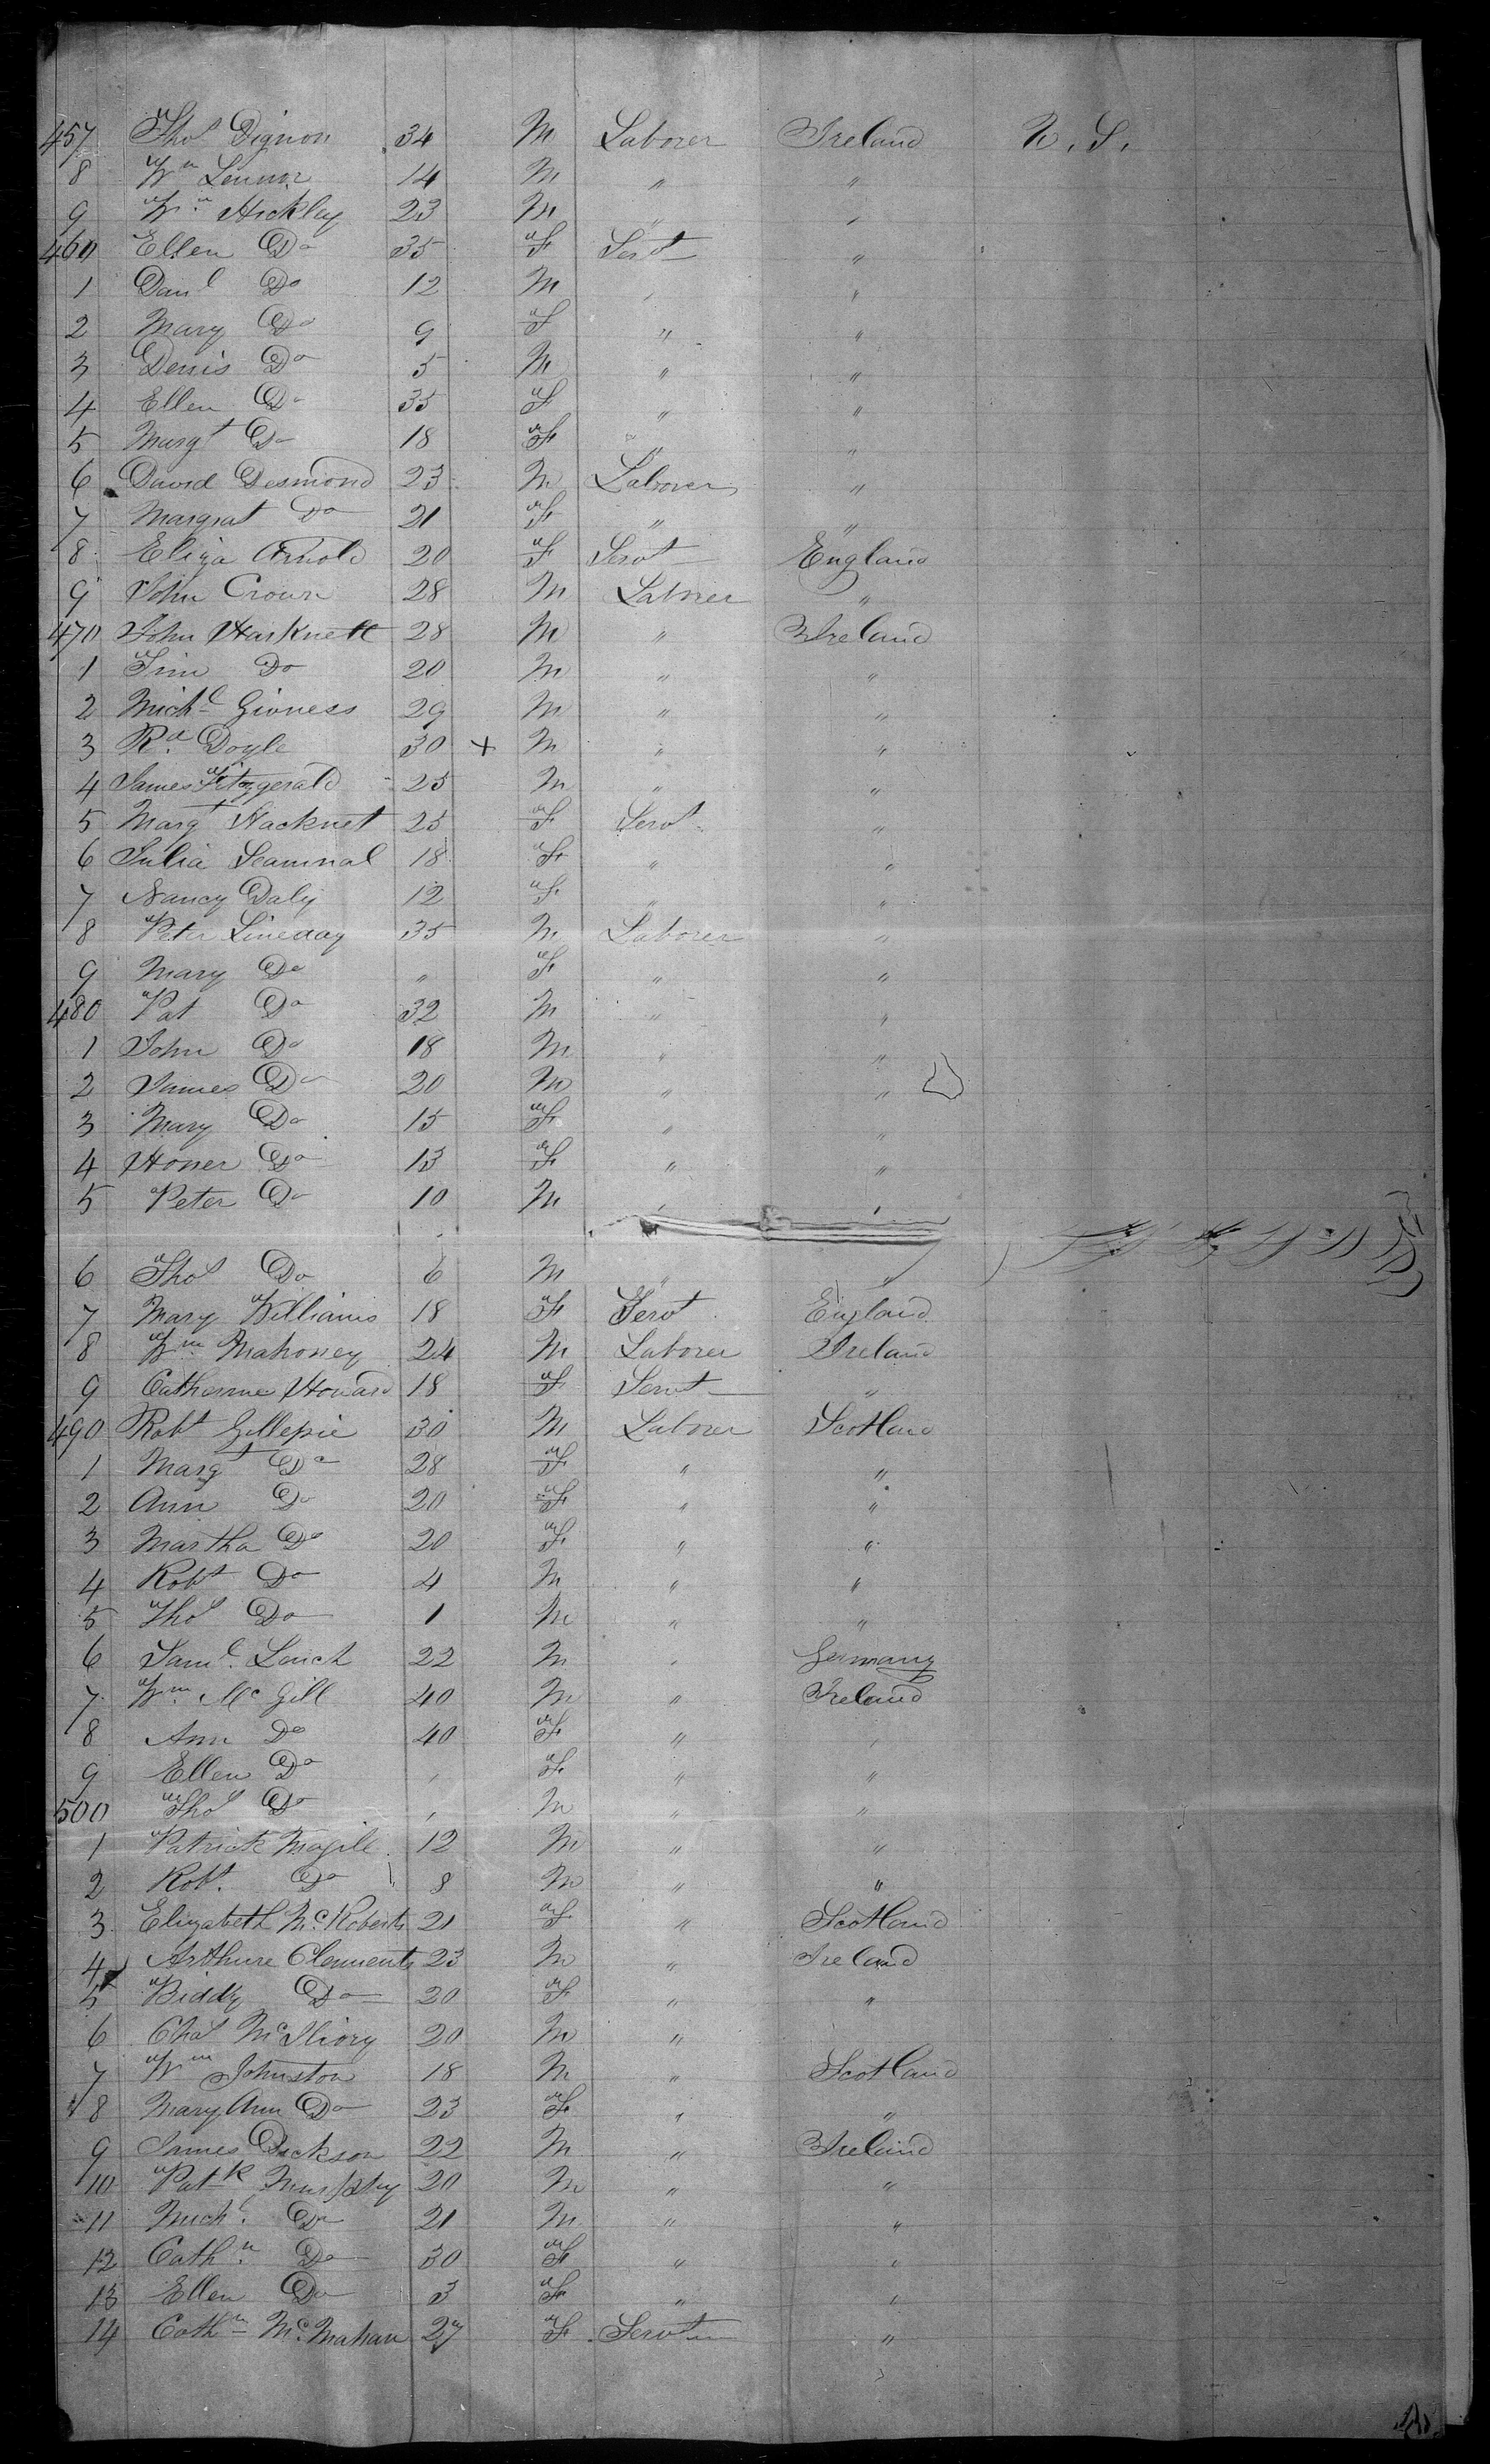 457 Thos Dignon 34 M Laborer Ireland U. S.
8 Wm Lennon 14 M " "
9 Wm Hickley 23 M " "
460 Ellen Do 35 F Servt "
1 Danl Do 12 M " "
2 Mary Do 9 F " "
3 Denis Do 5 M " "
4 Ellen Do 35 F " "
5 Margt Do 18 F " "
6 David Desmond 23 M Laborer "
7 Margrat Do 21 F " "
8 Eliza Arnold 20 F Servt England
9 John Crown 28 M Laborer "
470 John Harknett 28 M " Ireland
1 Tim Do 20 M " "
2 Michl Givness 29 M " "
3 Rd Doyle 30 + M " "
4 James Fitzgerald 25 M " "
5 Margt Hacknet 25 F Servt "
6 Julia Scannal 18 F " "
7 Nancy Daly 12 F " "
8 Peter Lineday 35 M Laborer "
9 Mary Do " F " "
480 Pat Do 32 M " "
1 John Do 18 M " "
2 James Do 20 M " "
3 Mary Do 15 F " "
4 Honer Do 13 F " "
5 Peter Do 10 M " "
6 Thos Do 6 M " "
7 Mary Williams 18 F Servt England
8 Wm Mahoney 24 M Laborer Ireland
9 Catherine Howard 18 F Servt "
490 Robt Gillepie 30 M Laborer Scotland
1 Margt Do 28 F " "
2 Ann Do 20 F " "
3 Martha Do 20 F " "
4 Robt Do 4 M " "
5 Thos Do 1 M " "
6 Saml. Louch 22 M " Germany
7 Wm. Mc Gill 40 M " Ireland
8 Ann Do 40 F " "
9 Ellen Do " F " "
500 Thos Do " M " "
1 Patrick Magill 12 M " "
2 Robt. Do 8 M " "
3 Elizabeth McRoberts 21 F " Scotland
4 Arthure Clements 23 M " Ireland
5 Biddy Do 20 F " "
6 Chas McIliory 20 M "
7 Wm Johnston 18 M " Scotland
8 Mary Ann Do 23 F " "
9 James Dickson 22 M " Ireland
10 Patk Murphy 20 M " "
11 Michl. Do 21 M " "
12 Cathn. Do 30 F " "
13 Ellen Do 3 F " "
14 Cathn McMahan 27 F Servt "